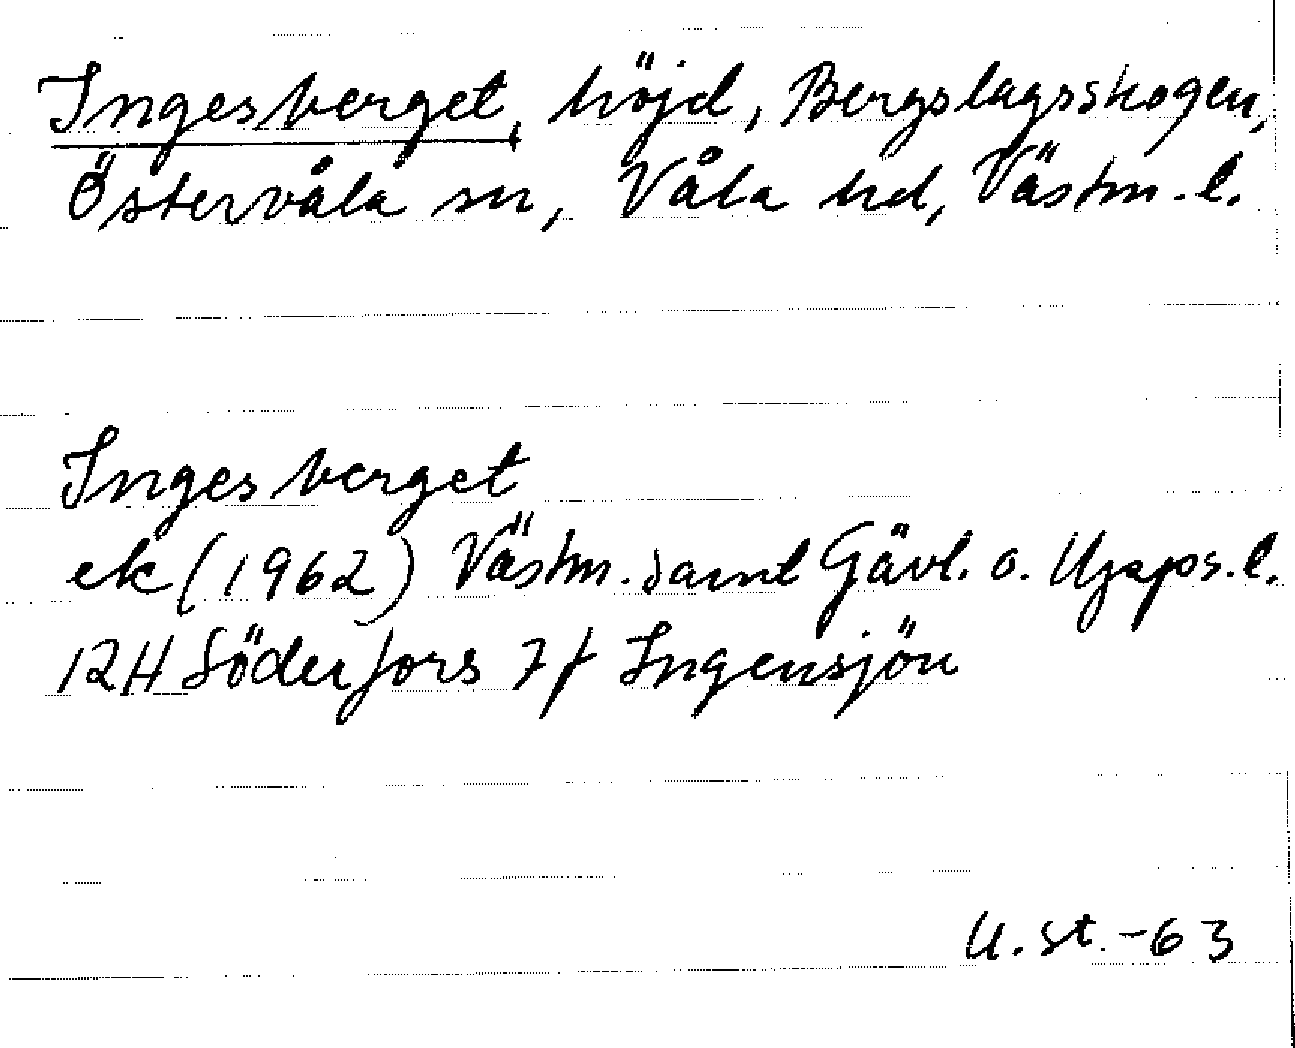 Ingesberget, höjd, Bergslagsskogen,
Östervåla sn, Våla hd, Västm. l.
Ingesberget
ek (1962) Västm. samt Gävl. o. Upps. l.
12H Söderfors 7f Ingensjön
U. St. -63